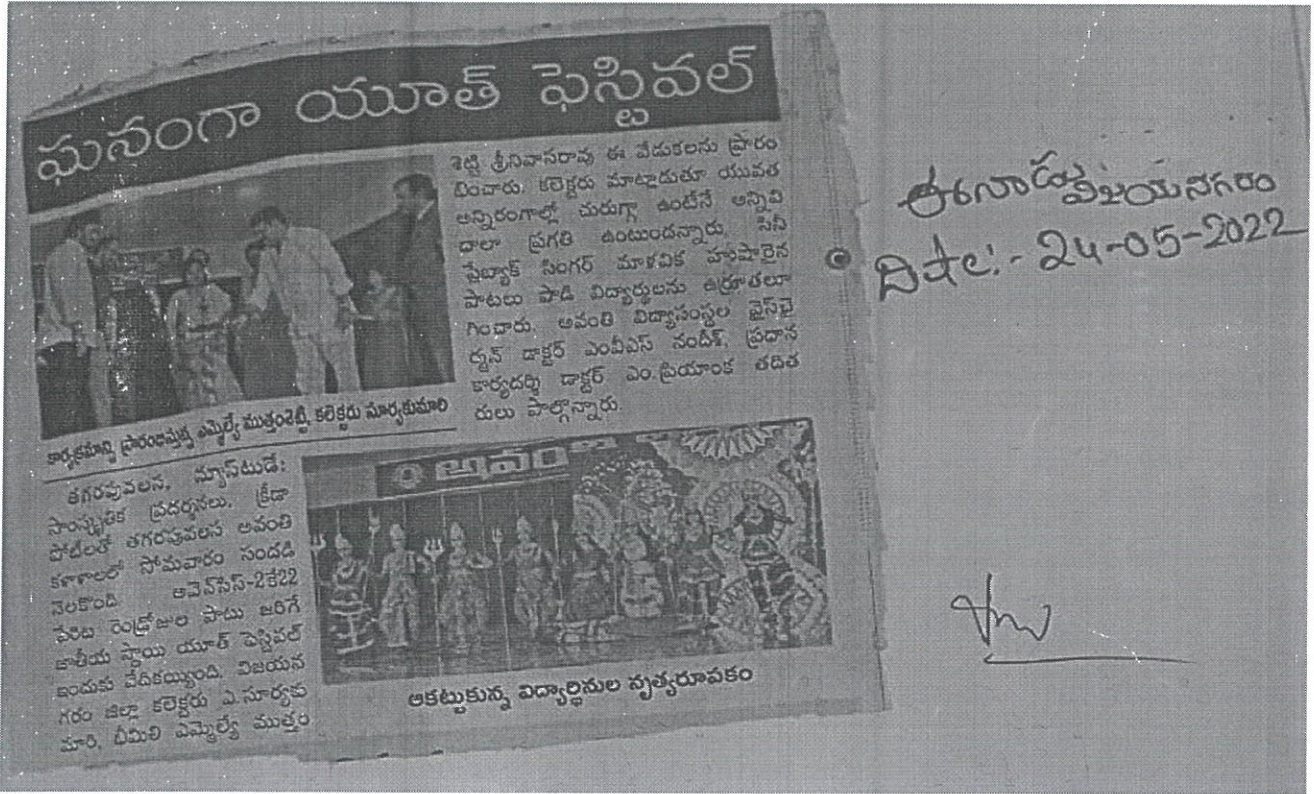 ఘనంగా యూత్ ఫెస్టివల్
కార్యక్రమాన్ని ప్రారంభిస్తున్న ఎమ్మెల్యే ముత్తంశెట్టి, కలెక్టరు సూర్యకుమారి
తగరపువలస, న్యూస్‌టుడే:
సాంస్కృతిక ప్రదర్శనలు, క్రీడా
పోటీలతో తగరపువలస అవంతి
కళాశాలలో సోమవారం సందడి
నెలకొంది. అవెన్‌సిస్-2కే22
పేరిట రెండ్రోజుల పాటు జరిగే
జాతీయ స్థాయి యూత్ ఫెస్టివల్
ఇందుకు వేదికయ్యింది. విజయన
గరం జిల్లా కలెక్టరు ఎ.సూర్యకు
మారి, భీమిలి ఎమ్మెల్యే ముత్తం
శెట్టి శ్రీనివాసరావు ఈ వేడుకలను ప్రారం
భించారు. కలెక్టరు మాట్లాడుతూ యువత
అన్నిరంగాల్లో చురుగ్గా ఉంటేనే అన్నివి
ధాలా ప్రగతి ఉంటుందన్నారు. సినీ
ప్లేబ్యాక్ సింగర్ మాళవిక హుషారైన
పాటలు పాడి విద్యార్థులను ఉర్రూతలూ
గించారు. అవంతి విద్యాసంస్థల వైస్‌ఛై
ర్మన్ డాక్టర్ ఎంవీఎస్ నందీశ్, ప్రధాన
కార్యదర్శి డాక్టర్ ఎం.ప్రియాంక తదిత
రులు పాల్గొన్నారు.
అవం
ఆకట్టుకున్న విద్యార్థినుల నృత్యరూపకం
ఈనాడు విజయనగరం
Date:- 24-05-2022